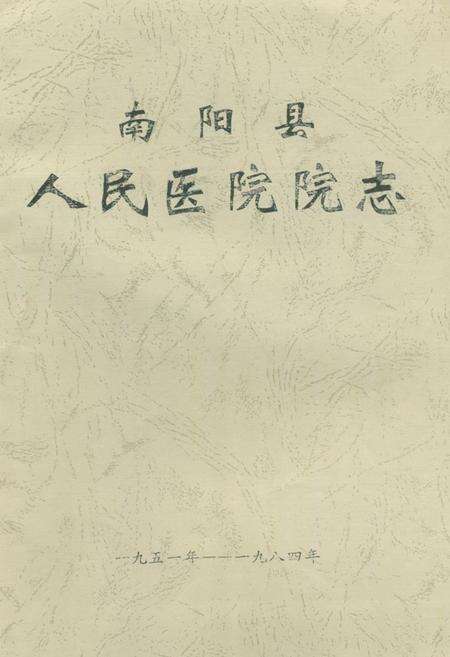 南阳县
人民医院院志
一九五一年——一九八四年